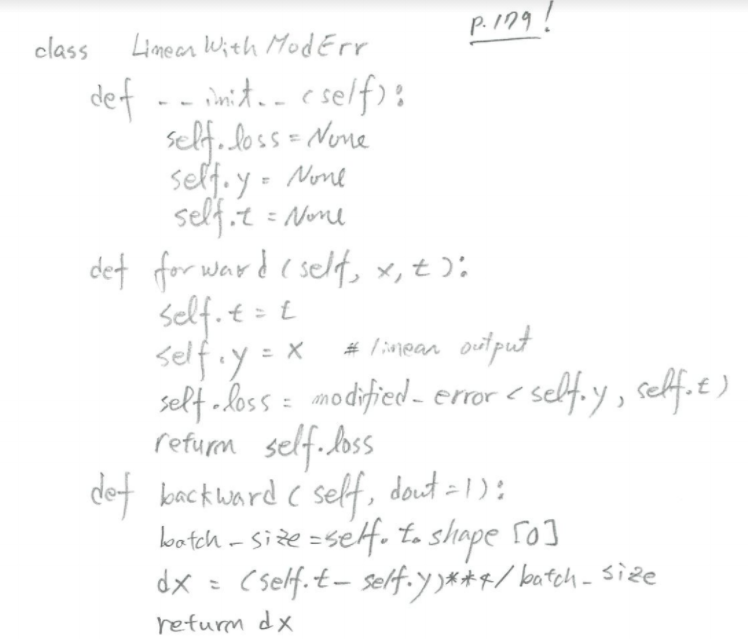 p.179!
class LinearWithModErr
def __init__(self):
self.loss = None
self.y = None
self.t = None
def forward(self, x, t):
self.t = t
self.y = x # linear output
self.loss = modified_error(self.y, self.t)
return self.loss
def backward(self, dout=1):
batch_size = self.t.shape[0]
dx = (self.t - self.y)**4/batch_size
return dx